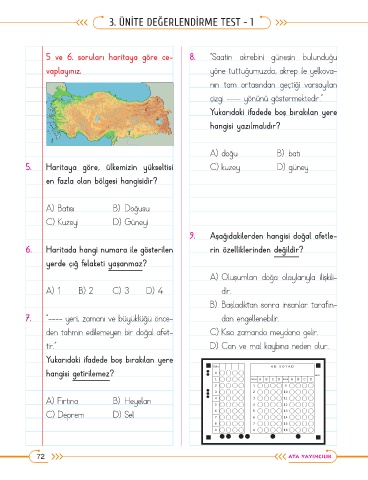 3. ÜNİTE DEĞERLENDİRME TEST - 1
5 ve 6. soruları haritaya göre ce-
vaplayınız.
5. Haritaya göre, ülkemizin yükseltisi
en fazla olan bölgesi hangisidir?
A) Batısı B) Doğusu
C) Kuzeyi D) Güneyi
6. Haritada hangi numara ile gösterilen
yerde çığ felaketi yaşanmaz?
A) 1 B) 2 C) 3 D) 4
7. "---- yeri, zamanı ve büyüklüğü önce-
den tahmin edilemeyen bir doğal afet-
tir."
Yukarıdaki ifadede boş bırakılan yere
hangisi getirilemez?
A) Fırtına B) Heyelan
C) Deprem D) Sel
8. "Saatin akrebini güneşin bulunduğu
yöne tuttuğumuzda, akrep ile yelkova-
nın tam ortasından geçtiği varsayılan
çizgi ---- yönünü göstermektedir."
Yukarıdaki ifadede boş bırakılan yere
hangisi yazılmalıdır?
A) doğu B) batı
C) kuzey D) güney
9. Aşağıdakilerden hangisi doğal afetle-
rin özelliklerinden değildir?
A) Oluşumları doğa olaylarıyla ilişkili-
dir.
B) Başladıktan sonra insanlar tarafın-
dan engellenebilir.
C) Kısa zamanda meydana gelir.
D) Can ve mal kaybına neden olur.
ADI SOYADI
72
ATA YAYINCILIK